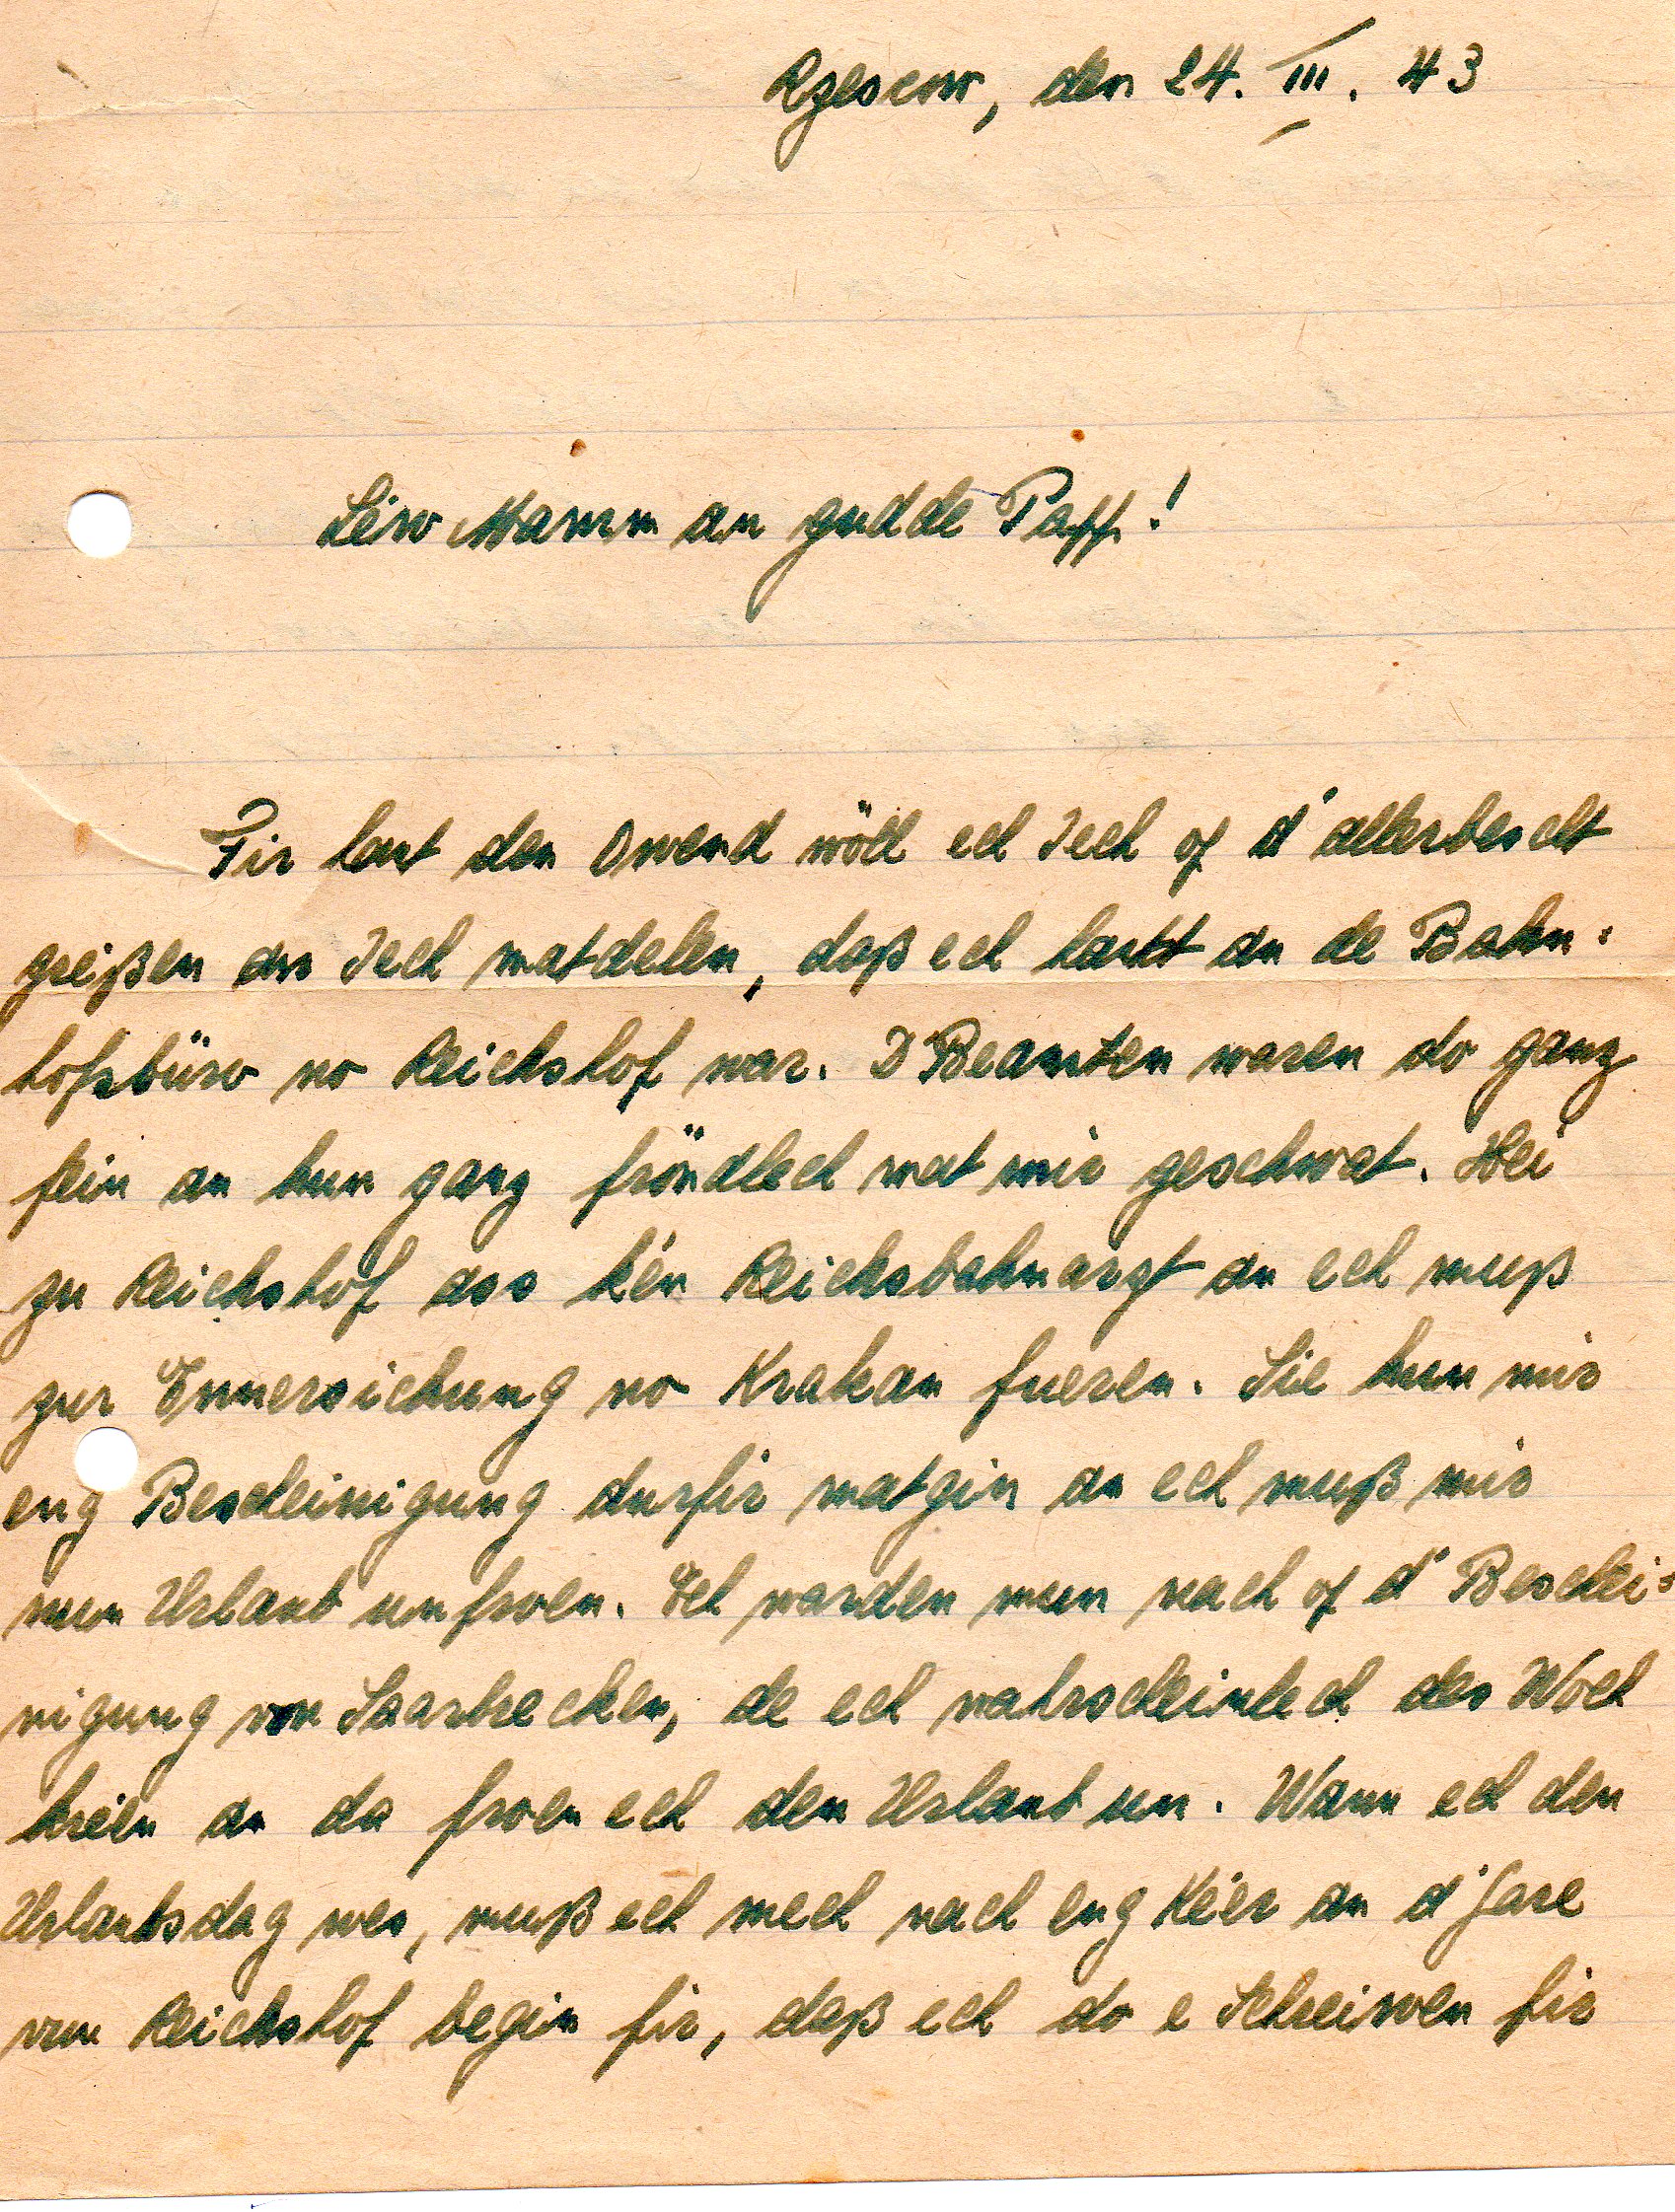 Rzescow, den 24. III. 43
Léiw Mamm an gudde Papp!
Fir haut den Owend wöll ech Iech of d'allerbescht
greißen an Iech matdelen, daß ech hautt an de Bahn-
hofsbüro no Reichshof war. D'Beamten waren do ganz
fein an hun ganz fröndlech mat mir geschwat. Hei
zu Reichshof ass kén Reichsbahnarzt an ech muß
zur Ennersichung no Krakau fueren. Sie hun mir
eng Bescheinigung durfir matgin an ech muß mir
nun Urlaub unfroen. Ech warden nun nach of d'Beschei-
nigung von Saarbrecken, de ech wahrscheinlech des Woch
kréien an da froen ech den Urlaub un. Wann ech den
Urlaubsdag wes, muß ech mech nach eng Kéier an d'Gare
vun Reichshof begin fir, daß ech do e Schreiwen fir